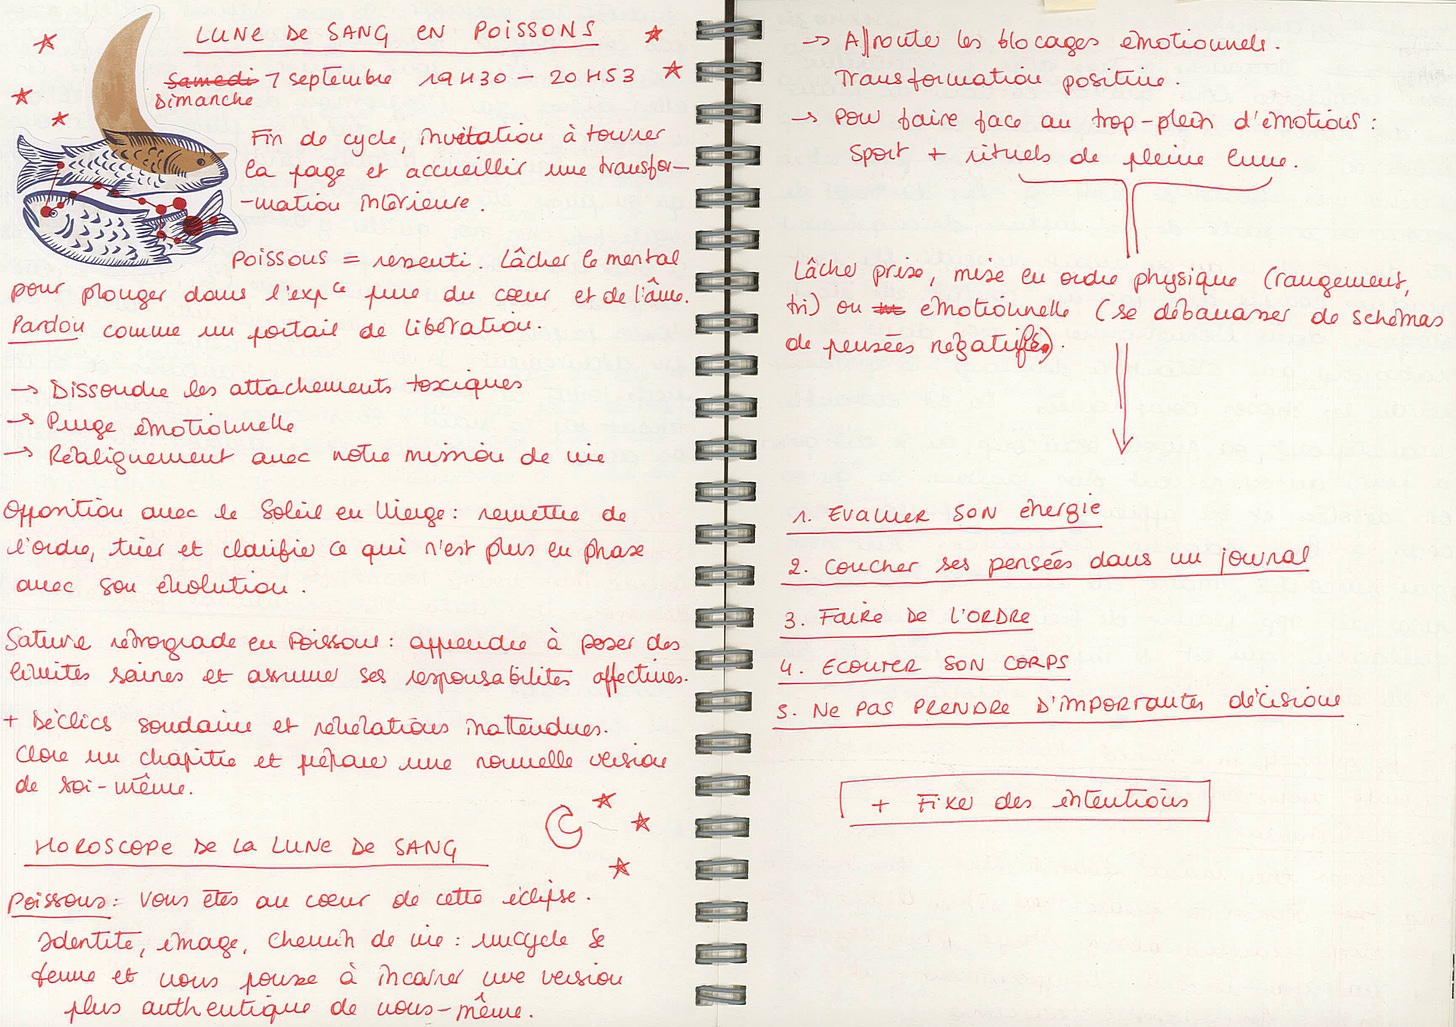 LUNE DE SANG EN POISSONS
Samedi 7 septembre 19H30 – 20H53
Dimanche
Fin de cycle, invitation à tourner
la page et accueillir une transfor-
-mation intérieure.
Poissons = ressenti. Lâcher le mental
pour plonger dans l'expce pure du cœur et de l'âme.
Pardon comme un portail de libération.
→ Dissoudre les attachements toxiques
→ Purge émotionnelle
→ Réalignement avec notre mission de vie
Opposition avec le Soleil en Vierge : remettre de
l'ordre, trier et clarifier ce qui n'est plus en phase
avec son évolution.
Saturne rétrograde en Poissons : apprendre à poser des
limites saines et assumer ses responsabilités affectives.
+ Déclics soudains et révélations inattendues.
Clore un chapitre et préparer une nouvelle version
de soi-même.
HOROSCOPE DE LA LUNE DE SANG
Poissons : Vous êtes au cœur de cette éclipse.
Identité, image, chemin de vie : un cycle se
ferme et vous pousse à incarner une version
plus authentique de vous-même.
→ Affronter les blocages émotionnels.
Transformation positive.
→ Pour faire face au trop-plein d'émotions :
Sport + rituels de pleine lune.
Lâcher prise, mise en ordre physique (rangement,
tri) ou émotionnelle (se débarrasser de schémas
de pensées négatifs).
1. Evaluer son énergie
2. Coucher ses pensées dans un journal
3. Faire de l'ordre
4. Ecouter son corps
5. Ne pas prendre d'importantes décisions
+ Fixer des intentions